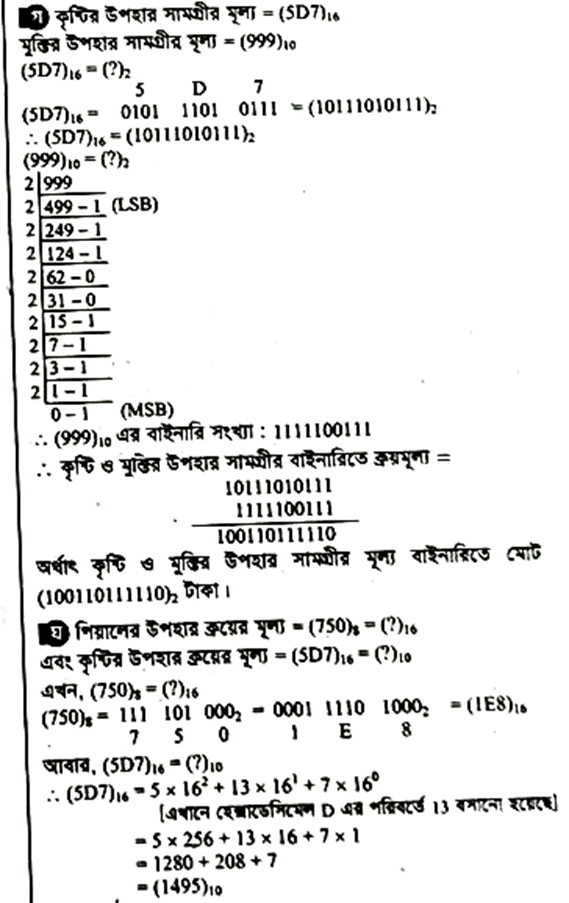 গ কৃষ্টির উপহার সামগ্রীর মূল্য = (5D7)₁₆
মুক্তির উপহার সামগ্রীর মূল্য = (999)₁₀
(5D7)₁₆ = (?)₂
5 D 7
(5D7)₁₆ = 0101 1101 0111 = (10111010111)₂
∴ (5D7)₁₆ = (10111010111)₂
(999)₁₀ = (?)₂
2 | 999
2 | 499 – 1 (LSB)
2 | 249 – 1
2 | 124 – 1
2 | 62 – 0
2 | 31 – 0
2 | 15 – 1
2 | 7 – 1
2 | 3 – 1
2 | 1 – 1
0 – 1 (MSB)
∴ (999)₁₀ এর বাইনারি সংখ্যা : 1111100111
∴ কৃষ্টি ও মুক্তির উপহার সামগ্রীর বাইনারিতে ক্রয়মূল্য =
10111010111
1111100111
100110111110
অর্থাৎ কৃষ্টি ও মুক্তির উপহার সামগ্রীর মূল্য বাইনারিতে মোট
(100110111110)₂ টাকা।
ঘ পিয়ালের উপহার ক্রয়ের মূল্য = (750)₈ = (?)₁₆
এবং কৃষ্টির উপহার ক্রয়ের মূল্য = (5D7)₁₆ = (?)₁₀
এখন, (750)₈ = (?)₁₆
(750)₈ = 111 101 000₂ = 0001 1110 1000₂ = (1E8)₁₆
7 5 0 1 E 8
আবার, (5D7)₁₆ = (?)₁₀
∴ (5D7)₁₆ = 5 × 16² + 13 × 16¹ + 7 × 16⁰
[এখানে হেক্সাডেসিমেল D এর পরিবর্তে 13 বসানো হয়েছে]
= 5 × 256 + 13 × 16 + 7 × 1
= 1280 + 208 + 7
= (1495)₁₀